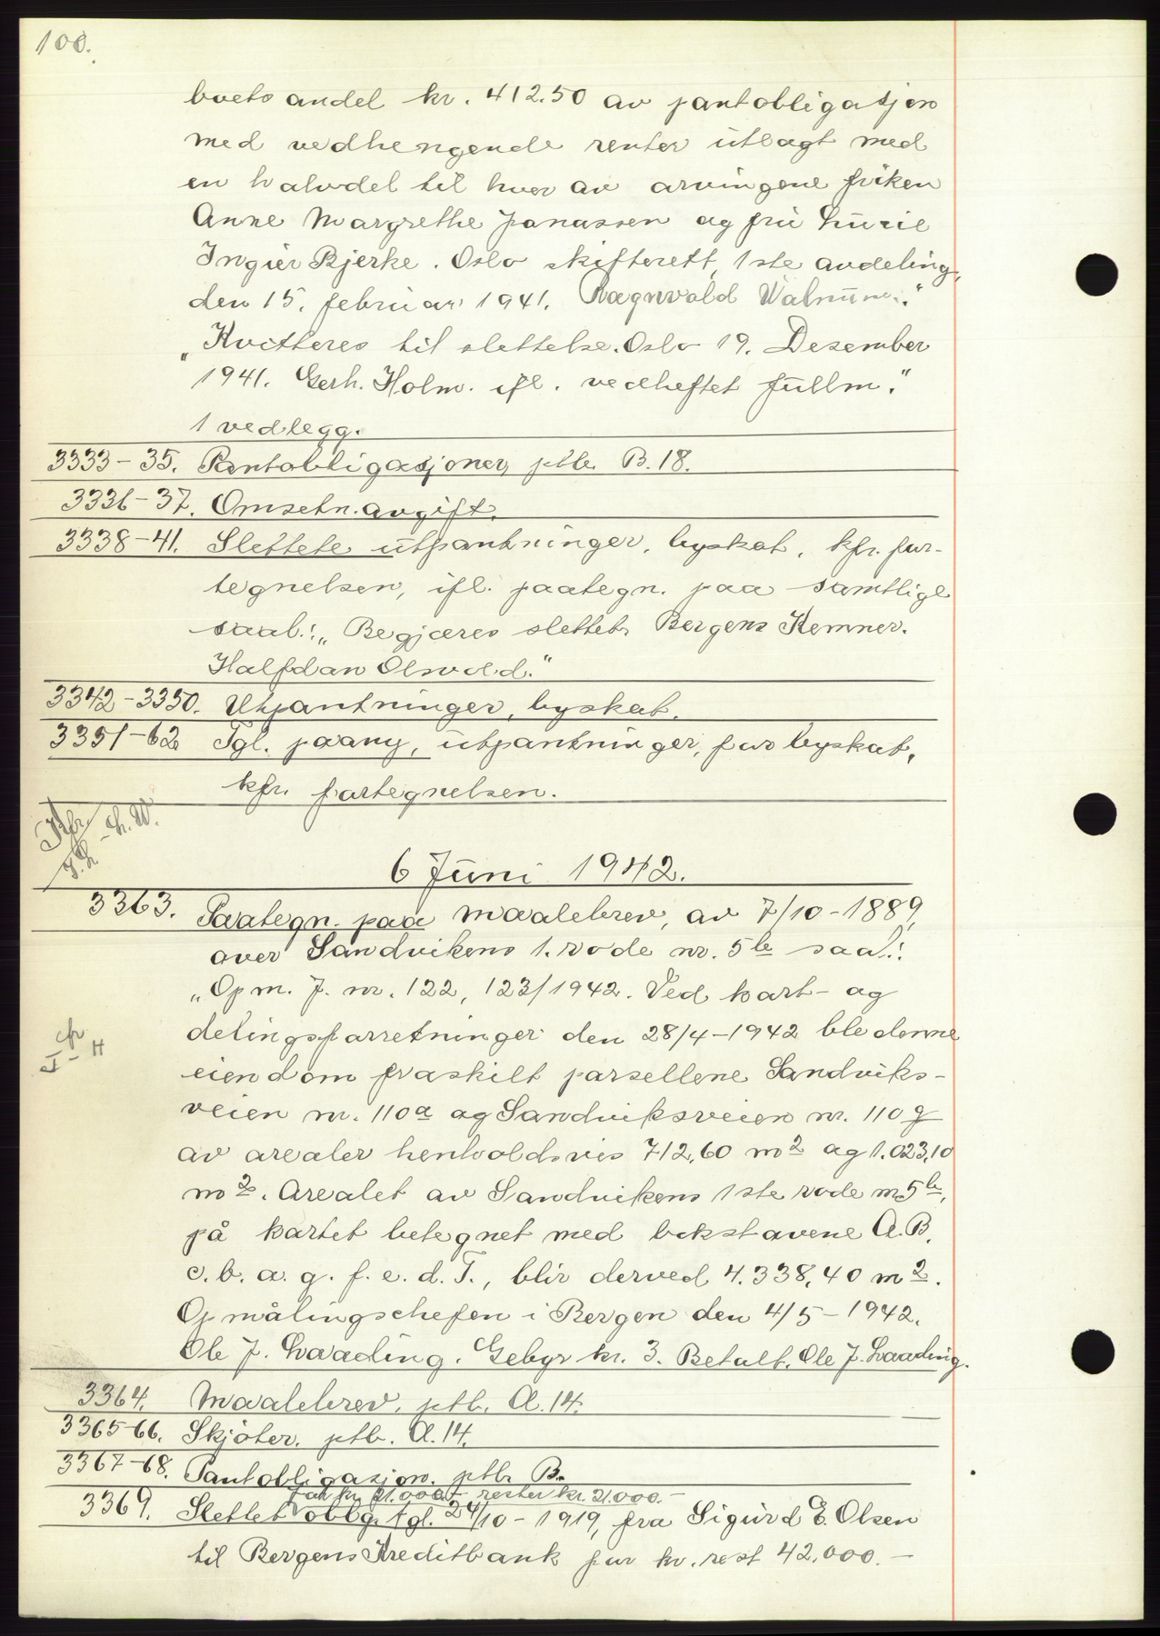 100.
boets andel kr. 412.50 av pantobligasjon
med vedhengende renter utlagt med
en halvdel til hver av arvingene frøken
Anne Margrethe Jonassen og fru Lucie
Ingier Bjerke. Oslo skifterett, 1ste avdeling,
den 15. februar 1941. Ragnvald
"Kvitteres til slettelse. Oslo 19. Desember
1941. Gerh. Holm. ifl. vedheftet fullm."
1 vedlegg.
3333-35. Pantobligasjoner, ptb. B.18.
3336-37. Omsetn.avgift.
3338-41. Slettete utpantninger, byskat, kfr. for-
tegnelsen, ifl. paategn. paa samtlige
saal.: "Begjæres slettet. Bergens Kemner.
Halfdan Olsvold."
3342-3350. Utpantninger, byskat.
3351-62 Tgl. paany, utpantninger, for byskat,
kfr. fortegnelsen.
6 Juni 1942.
3363. Paategn. paa maalebrev, av 7/10-1889,
over Sandvikens 1. rode nr. 5b saal.:
"Opm. J. nr. 122, 123/1942. Ved kart- og
delingsforretninger den 28/4-1942 ble denne
eiendom fraskilt parsellene Sandviks-
veien nr. 110a og Sandviksveien nr. 110g
av arealer henholdsvis 712,60 m2 og 1.023,10
m2. Arealet av Sandvikens 1ste rode nr 5b,
på kartet betegnet med bokstavene A.B.
c.b.a.g.f.e.d.T., blir derved 4.338,40 m2.
Opmålingschefen i Bergen den 4/5-1942.
Ole J. Laading. Gebyr kr. 3. Betalt. Ole J. Laading.
3364. Maalebrev, ptb. A.14.
3365-66. Skjøter. ptb. A.14.
3367-68. Pantobligasjon. ptb. B.
for kr. 21.000.- rester kr. 21.000.-
3369. Slettet oblg. tgl. 24/10-1919, fra Sigurd E. Olsen
til Bergens Kreditbank for kr. rest 42.000.-